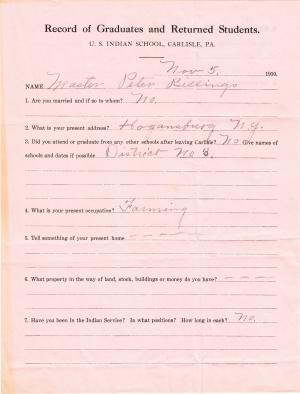 Record of Graduates and Returned Students.
U. S. INDIAN SCHOOL, CARLISLE, PA.
Nov 5, 1910.
NAME Master Peter Billings
1. Are you married and if so to whom? No.
2. What is your present address? Hogansburg N.Y.
3. Did you attend or graduate from any other schools after leaving Carlisle? No (Give names of
schools and dates if possible District No 8.
4. What is your present occupation? Farming
5. Tell something of your present home — — — —
6. What property in the way of land, stock, buildings or money do you have? — — —
7. Have you been in the Indian Service? In what positions? How long in each? No.